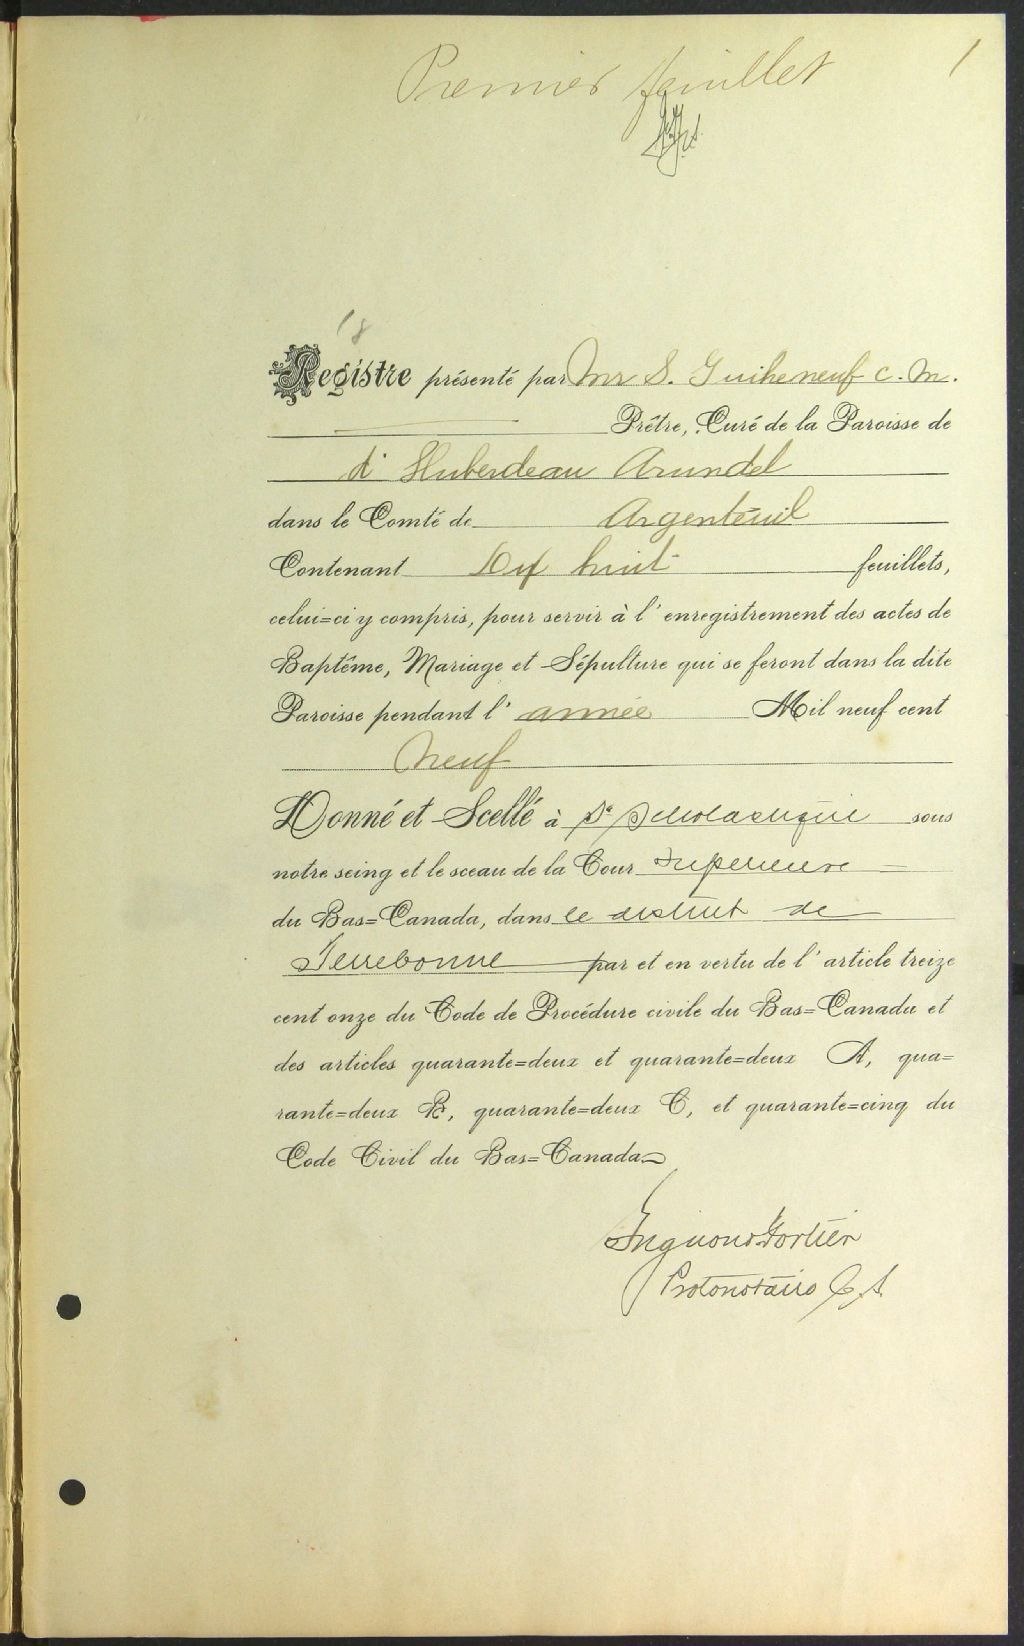 Premier feuillet
1
18
Registre présenté par Mr S. Guiheneuf c. m.
Prêtre, Curé de la Paroisse de
d' Huberdeau Arundel
dans le Comté de Argenteuil
Contenant Dix huit feuillets,
celui=ci y compris, pour servir à l'enregistrement des actes de
Baptême, Mariage et Sépulture qui se feront dans la dite
Paroisse pendant l'année Mil neuf cent
Neuf
Donné et Scellé à Ste Scholastique sous
notre seing et le sceau de la Cour Superieure
du Bas=Canada, dans le district de
Terrebonne par et en vertu de l'article treize
cent onze du Code de Procédure civile du Bas=Canada et
des articles quarante=deux et quarante=deux A, qua=
rante=deux B, quarante=deux C, et quarante=cinq du
Code Civil du Bas=Canada
Fortier
Protonotaire C. S.